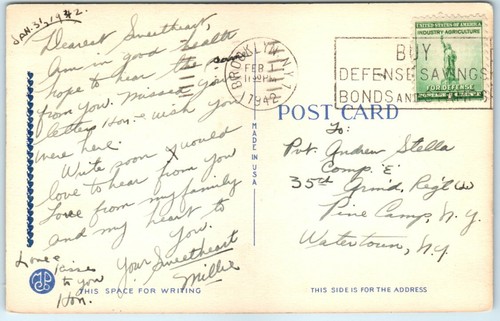 Jan. 31, 1942.
Dearest Sweetheart,
Am in good health
hope to hear the same
from you. Missed your
letter Hon. & wish you
were here.
Write soon would
love to hear from you
Love from my family
and my heart to
you.
Your Sweetheart
Millie
Love &
Kisses
to you
Hon.
THIS SPACE FOR WRITING
MADE IN USA
BROOKLYN, N.Y.
FEB
1942
BUY
DEFENSE SAVINGS
BONDS AND
UNITED STATES OF AMERICA
INDUSTRY AGRICULTURE
FOR DEFENSE
POST CARD
To:
Pvt. Andrew Stella
Comp. "E"
35rd Arm'd, Reg't (L)
Pine Camp, N.Y.
Watertown, N.Y.
THIS SIDE IS FOR THE ADDRESS